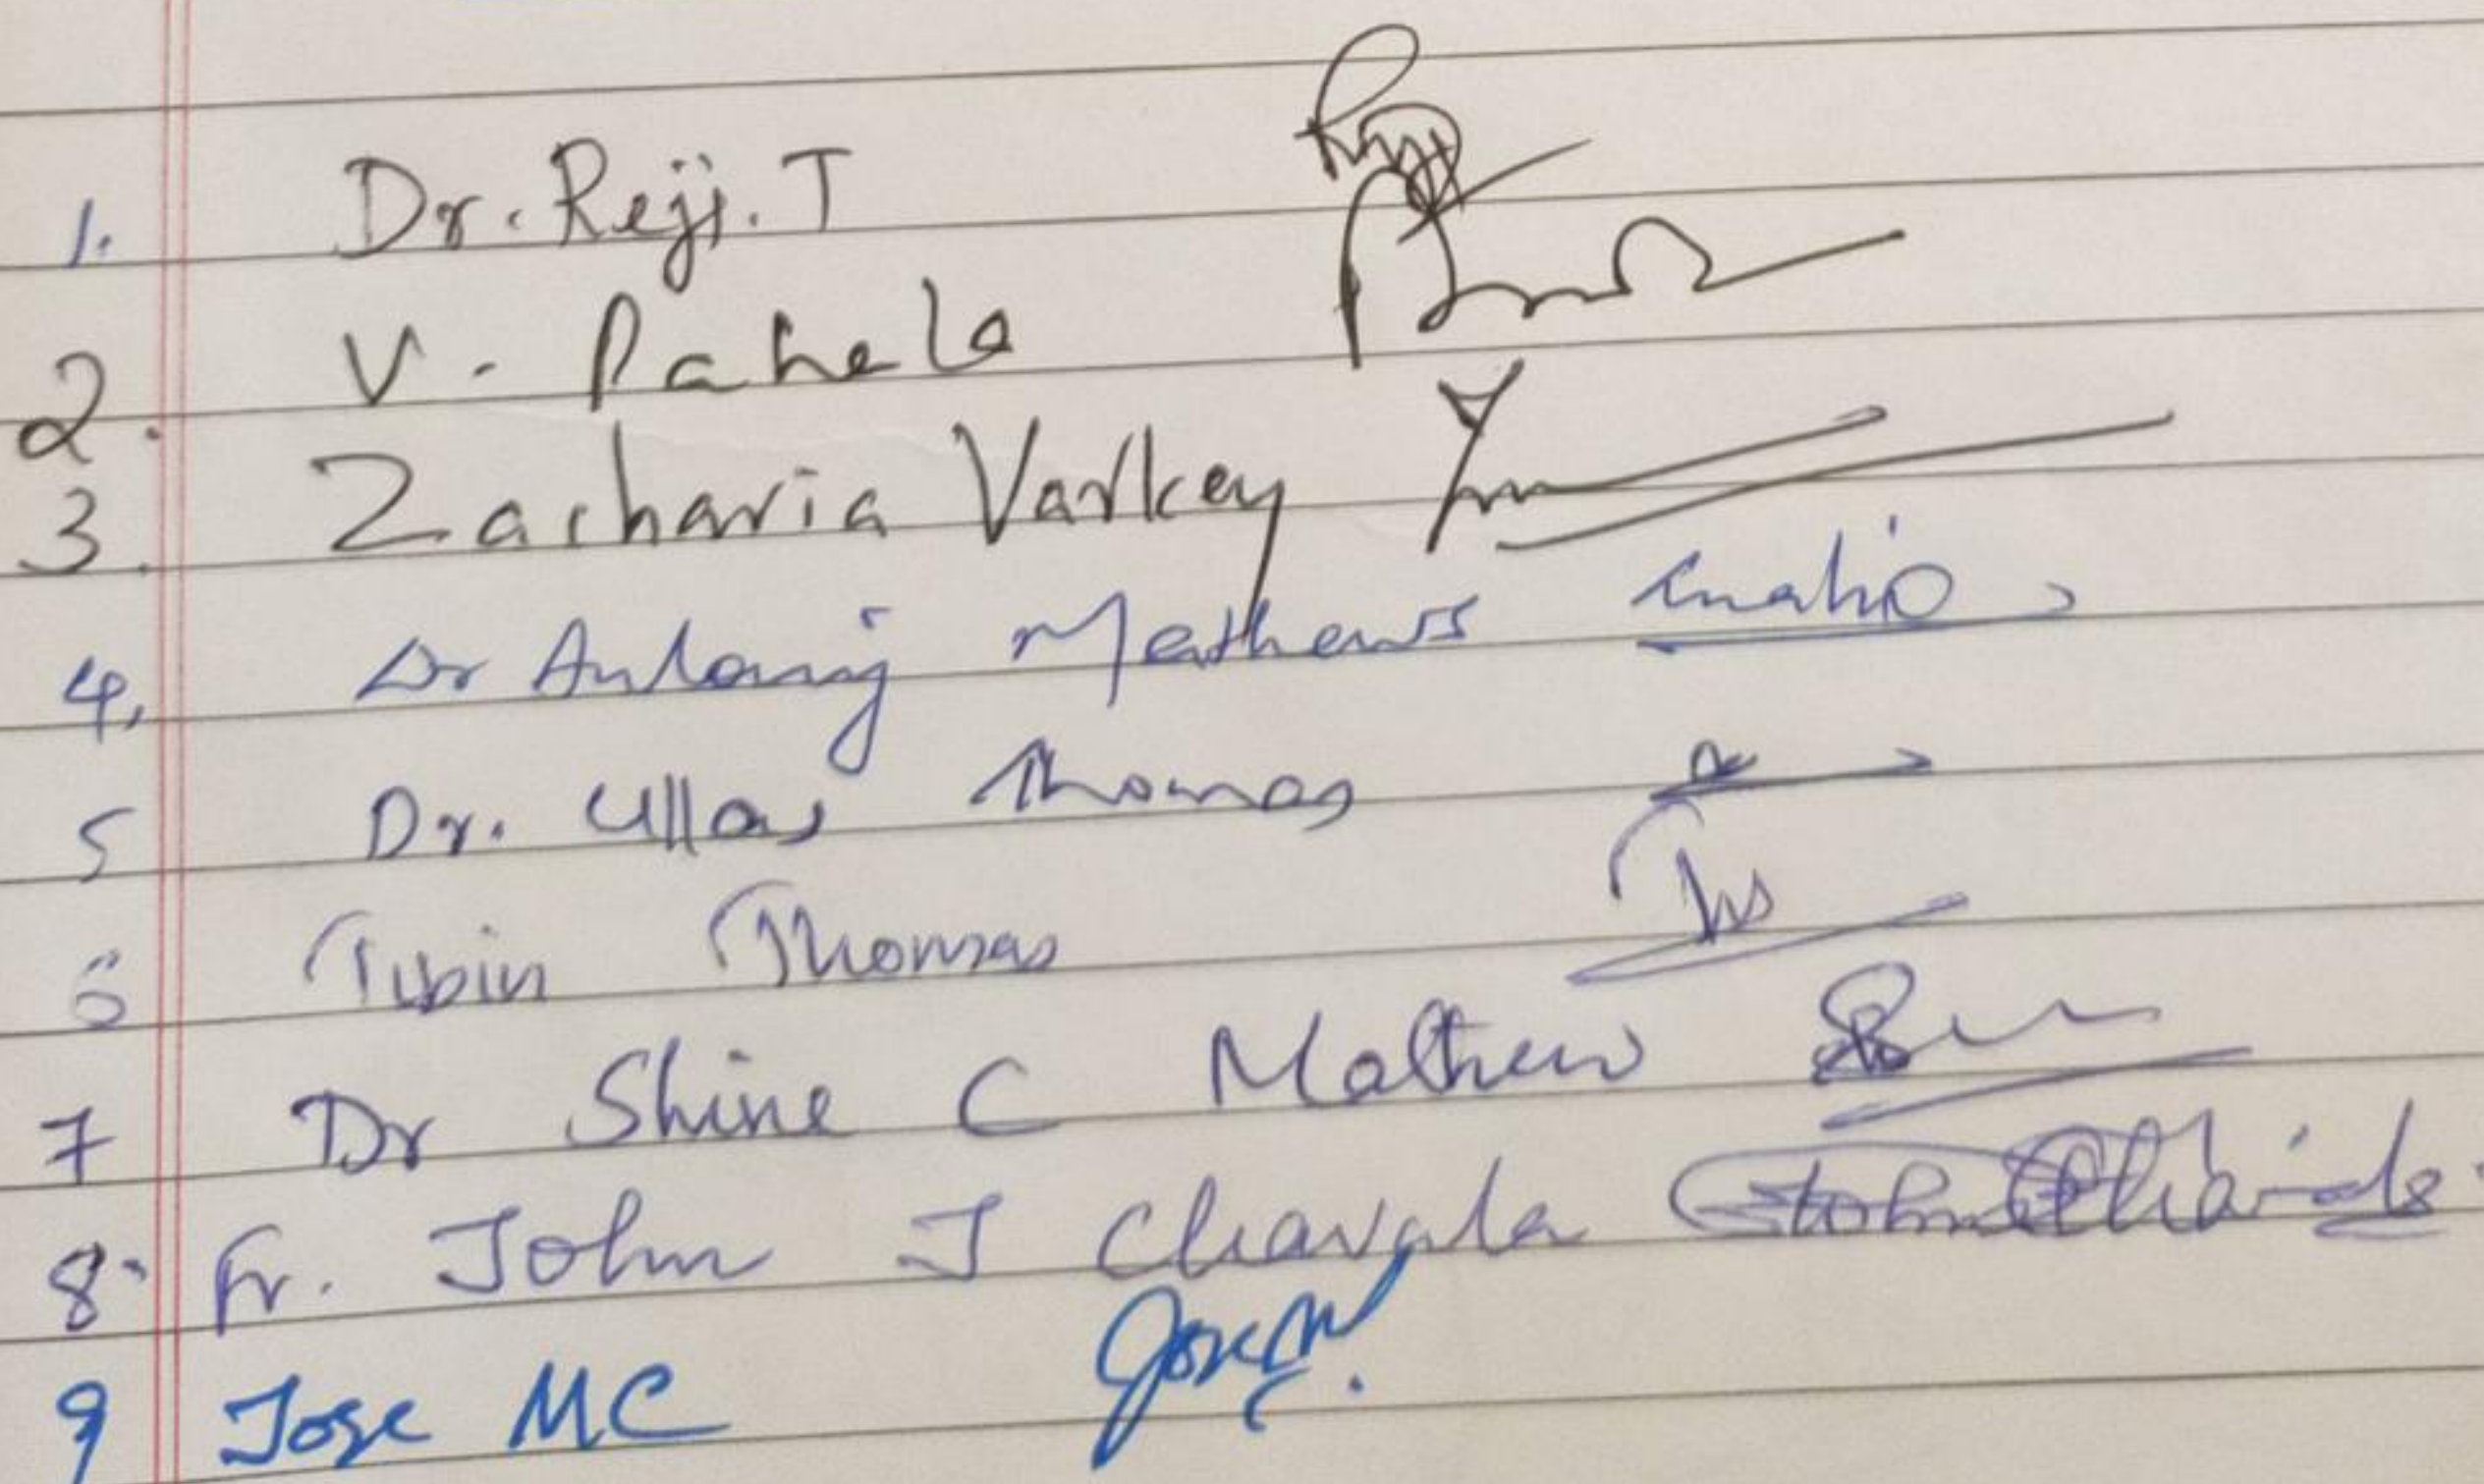 1. Dr. Reji. T
2. V.
3. Zacharia Varkey
4, Dr Antony Mathews
5 Dr. Ullas Thomas
6 Tibin Thomas
7 Dr Shine C Mathew
8. Fr. John J Chavala
9 Jose MC